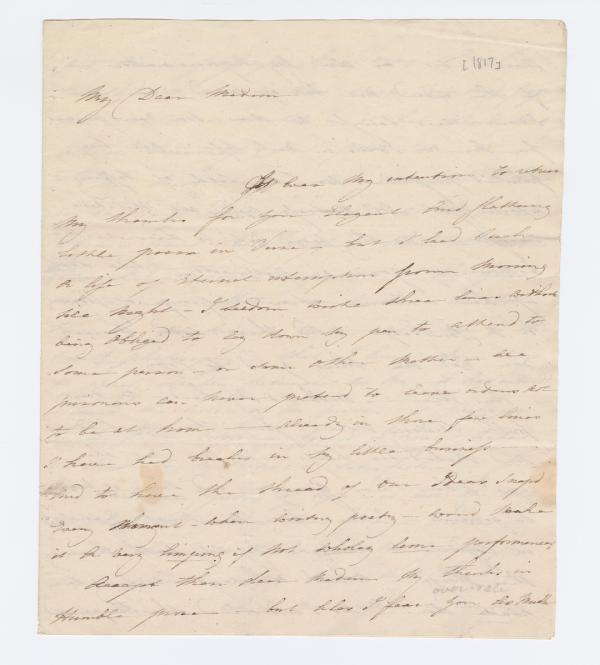 [1817]
My Dear Madam
It was My intention to return
My thanks for your Elegant And flattering
little poem in Verse – but I lead Such
A life of Eternal interruptions from Morning
till Night – I seldom write three lines without
being Obliged to lay down My pen to attend to
Some person – or Some other Matter – as
prisoners can never pretend to leave orders Not
to be at home – Already in those few lines
I have had breaks in by little business –
And to have the thread of our Ideas Snap'd
Every Moment – when writing poetry – would Make
it A very limping if Not wholey lame performance
Accept then dear Madam My thanks in
Humble prose – but Alas I fear You As Much
over-rate